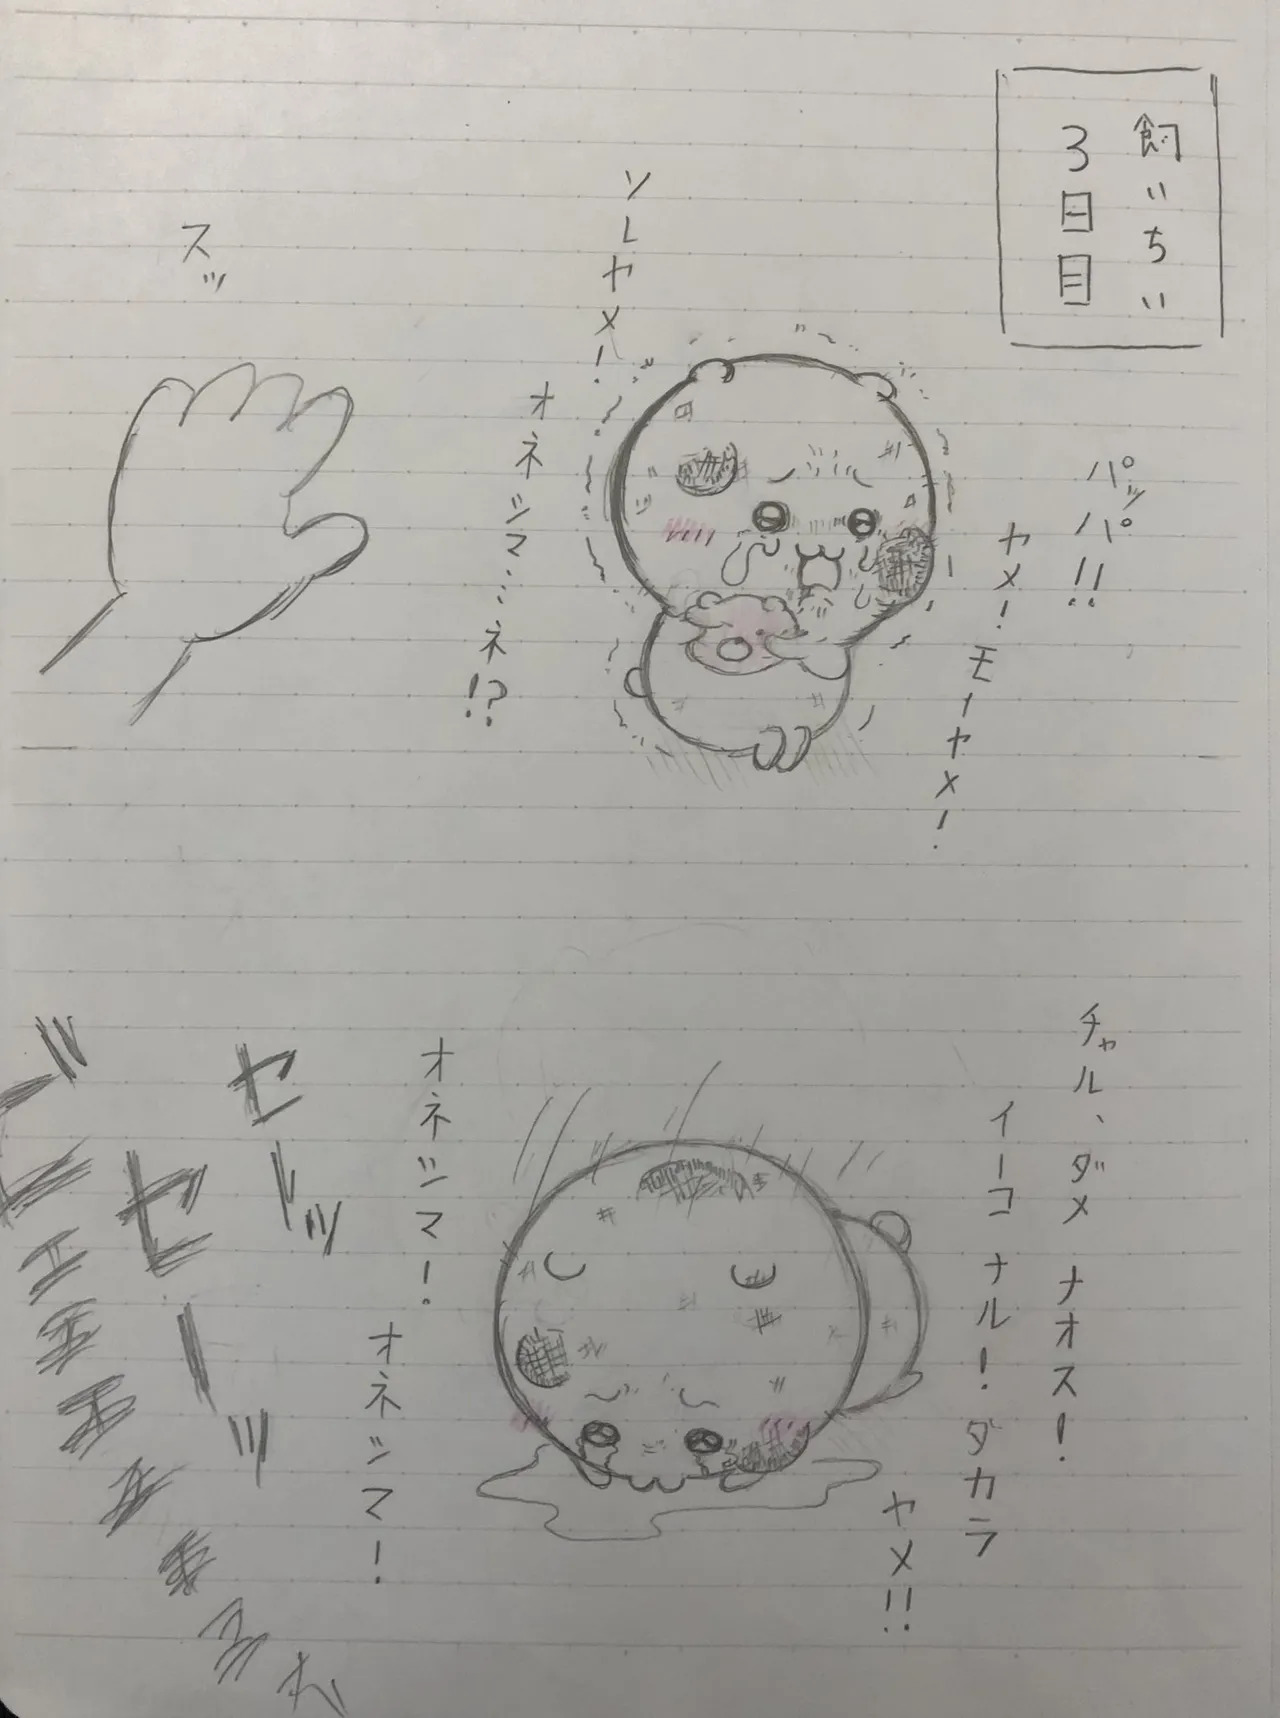 飼いちい
3日目
パッパ!!
ヤメ!モーヤメ!
ソレヤメ!
オネシマ…ネ!?
スッ
チャル、ダメ ナオス!
イーコ ナル!ダカラ
ヤメ!!
オネシマ!
オネシマ!
セーッ
セーッ